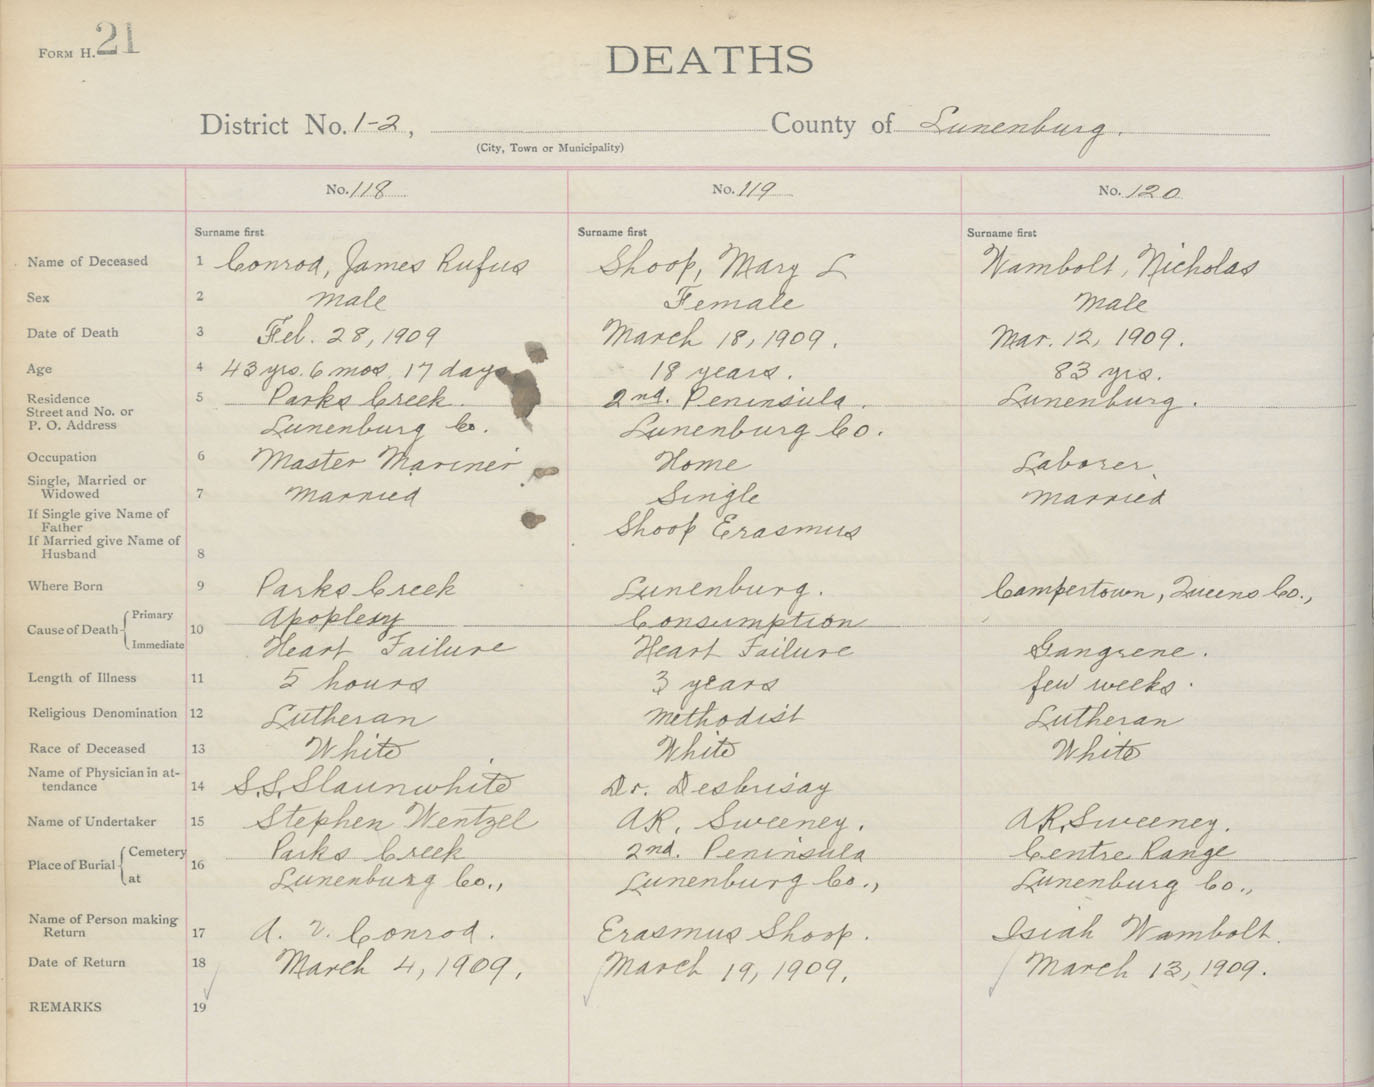 FORM H. 21
DEATHS
District No. 1-2, County of Lunenburg.
(City, Town or Municipality)
No. 118 No. 119 No. 120
Surname first Surname first Surname first
Name of Deceased 1 Conrod, James Rufus Shoop, Mary L Wambolt, Nicholas
Sex 2 male Female Male
Date of Death 3 Feb. 28, 1909 March 18, 1909. Mar. 12, 1909.
Age 4 43 yrs. 6 mos. 17 days 18 years. 83 yrs.
Residence 5 Parks Creek. 2nd. Peninsula. Lunenburg.
Street and No. or
P. O. Address Lunenburg Co. Lunenburg Co.
Occupation 6 Master Mariner Home Laborer.
Single, Married or
Widowed 7 Married Single Married
If Single give Name of
Father Shoop Erasmus
If Married give Name of
Husband 8
Where Born 9 Parks Creek Lunenburg. Campertown, Queens Co.,
Cause of Death 10 Primary Apoplexy Consumption
Immediate Heart Failure Heart Failure Gangrene.
Length of Illness 11 5 hours 3 years few weeks.
Religious Denomination 12 Lutheran Methodist Lutheran
Race of Deceased 13 White White White
Name of Physician in at-
tendance 14 S.S. Slaunwhite Dr. Desbrisay
Name of Undertaker 15 Stephen Wentzel A.R. Sweeney. A.R. Sweeney.
Place of Burial 16 Cemetery Parks Creek 2nd. Peninsula Centre Range
at Lunenburg Co., Lunenburg Co., Lunenburg Co.,
Name of Person making
Return 17 A. V. Conrod. Erasmus Shoop. Isiah Wambolt.
Date of Return 18 March 4, 1909. March 19, 1909. March 13, 1909.
REMARKS 19